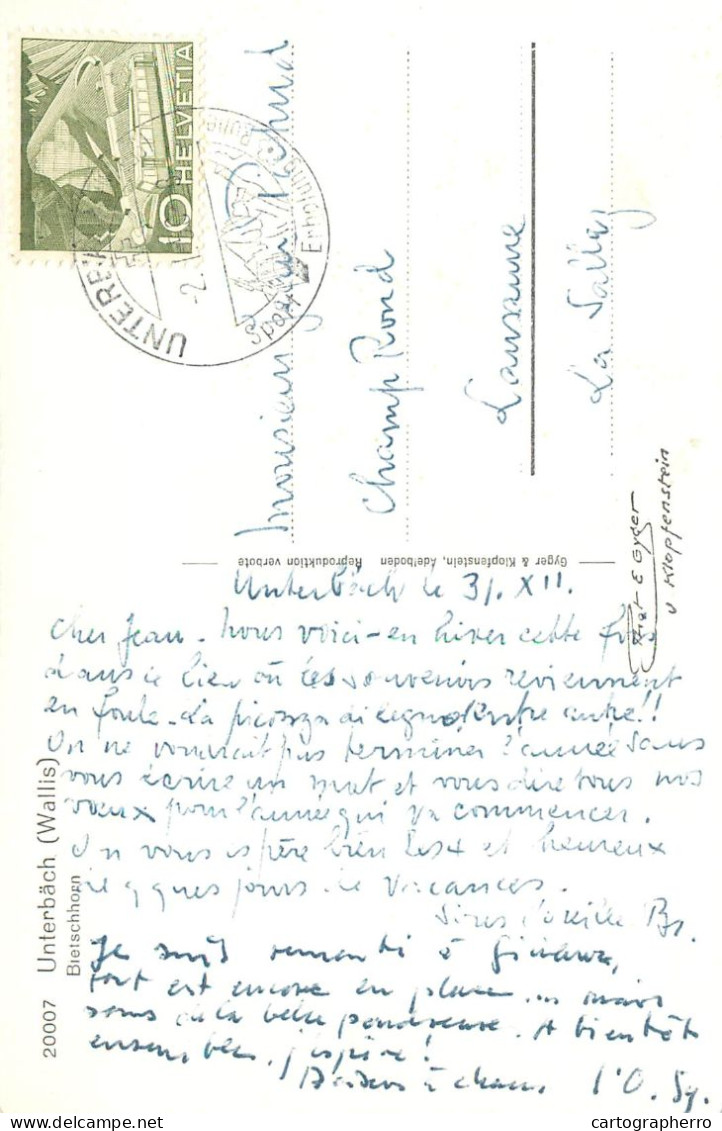 HELVETIA
10
UNTERB
Monsieur Jean
Champ Rond
Lausanne
La Sallaz
Gyger & Klopfenstein, Adelboden Reproduktion verbote
& Gyger
v Klopfenstein
Unterbäch le 31. XII.
Cher Jean - Nous voici - en hiver cette fois
dans ce lieu où les souvenirs reviennent
en foule - La di legno entre autre!!
On ne voudrait pas terminer l'année sans
vous écrire un mot et vous dire tous nos
vœux pour l'année qui va commencer.
On vous espère bien et heureux
de qques jours de vacances.
Je suis remonté à
tout est encore en place ... mais
sous de la belle poudreuse. A bientôt
ensemble, j'espère!
20007 Unterbäch (Wallis)
Bietschhorn
cartographerro